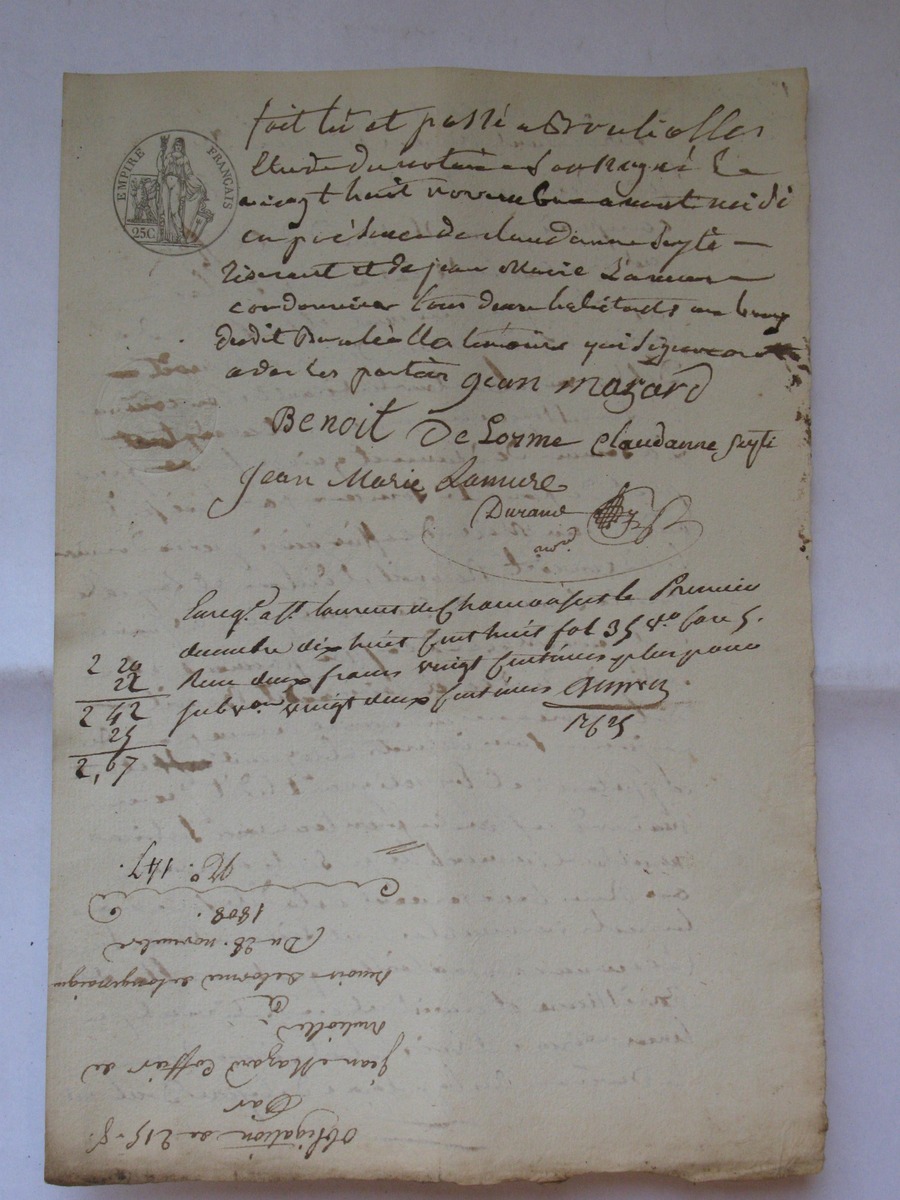 EMPIRE FRANÇAIS
25C
fait lû et passé a Brulliolles
Etude du notaire soussigné Le
vingt huit novembre avant midi
en présence de claudanne Seyti
et de jean Marie Lamure
cordonnier tous deux habitants au bourg
dudit temoins qui signeront
avec les parties jean mazard
Benoit De Lorme claudanne seyti
Jean Marie Lamure
Durand
nore
Enregt. a St. laurent de Chamousset le Premier
decembre dix huit cent huit fol 35 vo. Case 5.
Reçu deux francs vingt Centimes plus pour
subvon vingt deux Centimes
12625
2 20
22
2 42
25
2,67
Obligation de 215 f.
Par
jean Mazard de
Brulioles
à
Benoit Delorme de longessaigne
Du 28. novembre
1808.
No. 147.